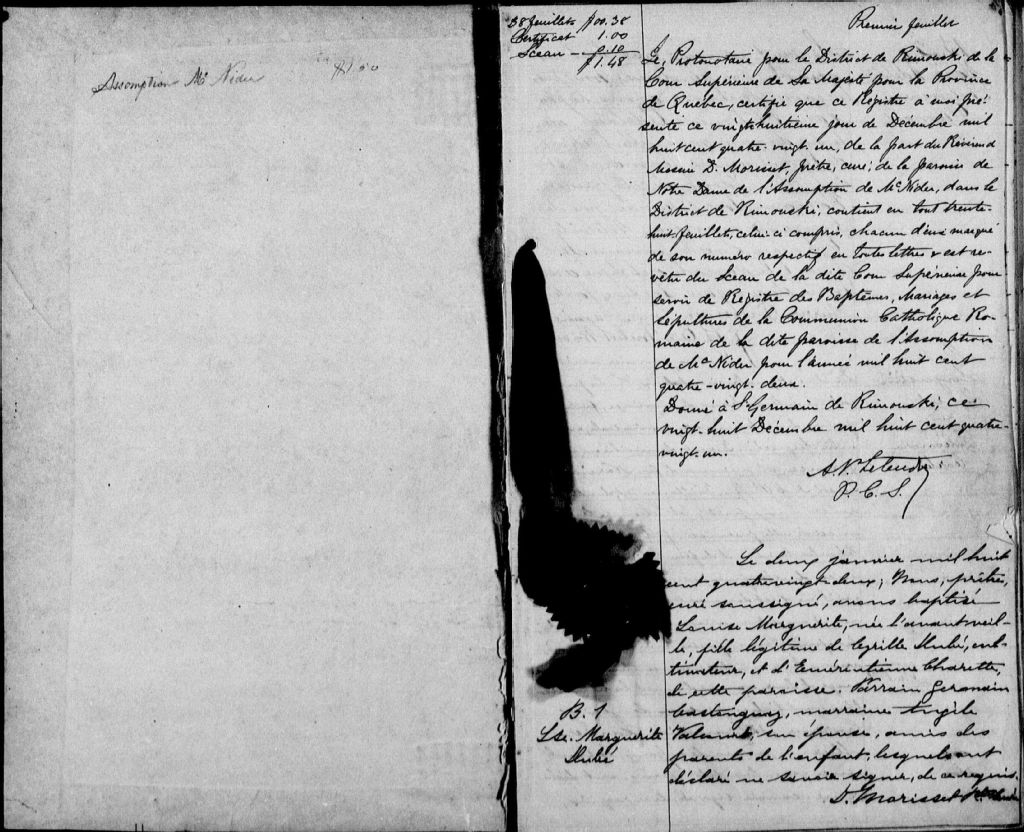 Assomption Mc Nider
$1.50
38 feuillets $00.38
Certificat 1.00
Sceau — 0.10
$1.48
Premier feuillet
Le Protonotaire pour le District de Rimouski de la
Cour Supérieure de Sa Majesté pour la Province
de Québec, certifie que ce Registre à moi pré-
senté ce vingt-huitième jour de Décembre mil
huit cent quatre-vingt-un, de la part du Révérend
Messire D. Morisset, prêtre, curé, de la paroisse de
Notre Dame de l'Assomption de McNider, dans le
District de Rimouski, contient en tout trente-
huit feuillets, celui-ci compris, chacun d'eux marqué
de son numéro respectif en toutes lettres & est re-
vêtu du Sceau de la dite Cour Supérieure pour
servir de Registre des Baptêmes, Mariages et
Sépultures de la Communion Catholique Ro-
maine de la dite paroisse de l'Assomption
de McNider pour l'année mil huit cent
quatre-vingt-deux.
Donné à St Germain de Rimouski, ce
vingt-huit Décembre mil huit cent quatre-
vingt-un.
P. C. S.
Le deux janvier mil huit
cent quatre vingt-deux, Nous, prêtre,
curé soussigné, avons baptisé
Louise Marguerite, née l'avant veil-
le, fille légitime de Cyrille Dubé, cul-
tivateur, et d'Emérentienne Charette,
de cette paroisse. Parrain Germain
Castonguay, marraine Angèle
son épouse, amis des
parents de l'enfant, lesquels ont
déclaré ne savoir signer, de ce requis.
D. Morisset Ptre Curé
B. 1
Lse. Marguerite
Dubé